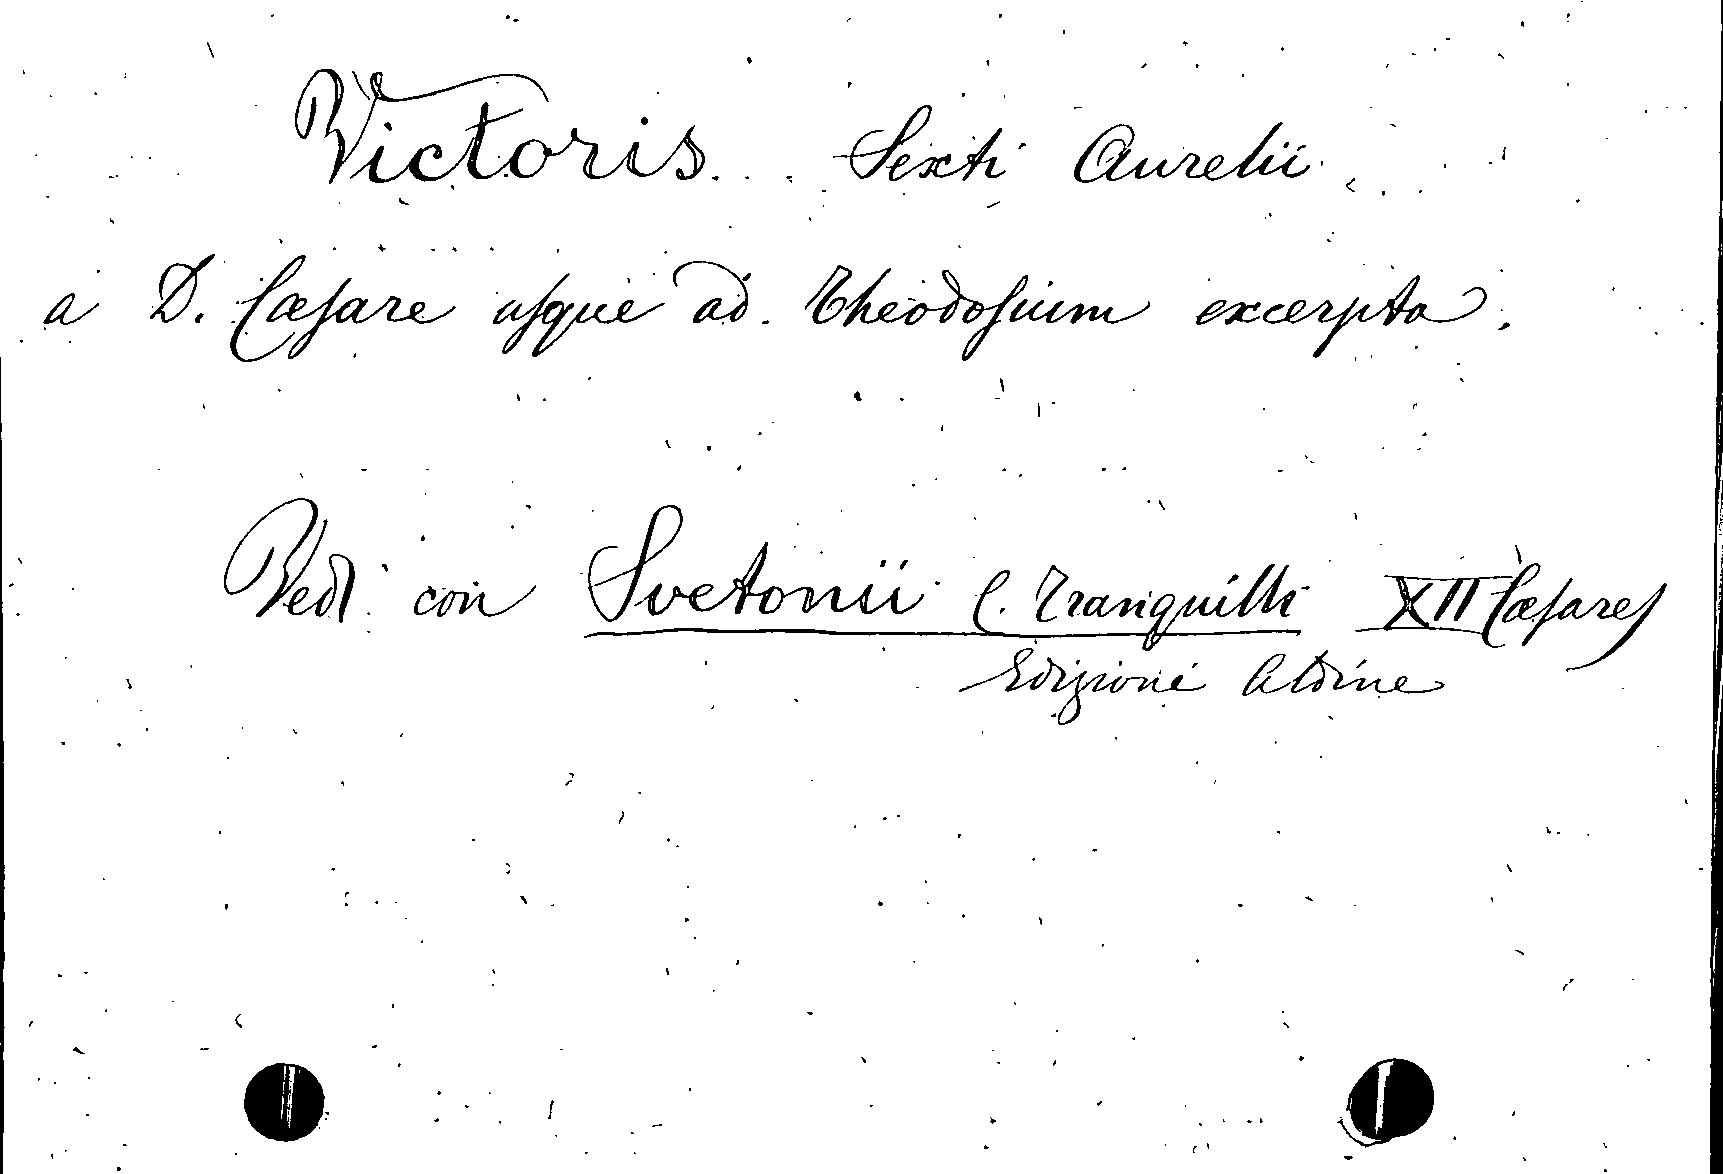 Victoris Sexti Aurelii
a D. Cæſare uſque ad Theodoſium excerpta.
Vedi con Svetonii C. Tranquilli XII Cæſares
Edizioni Aldine